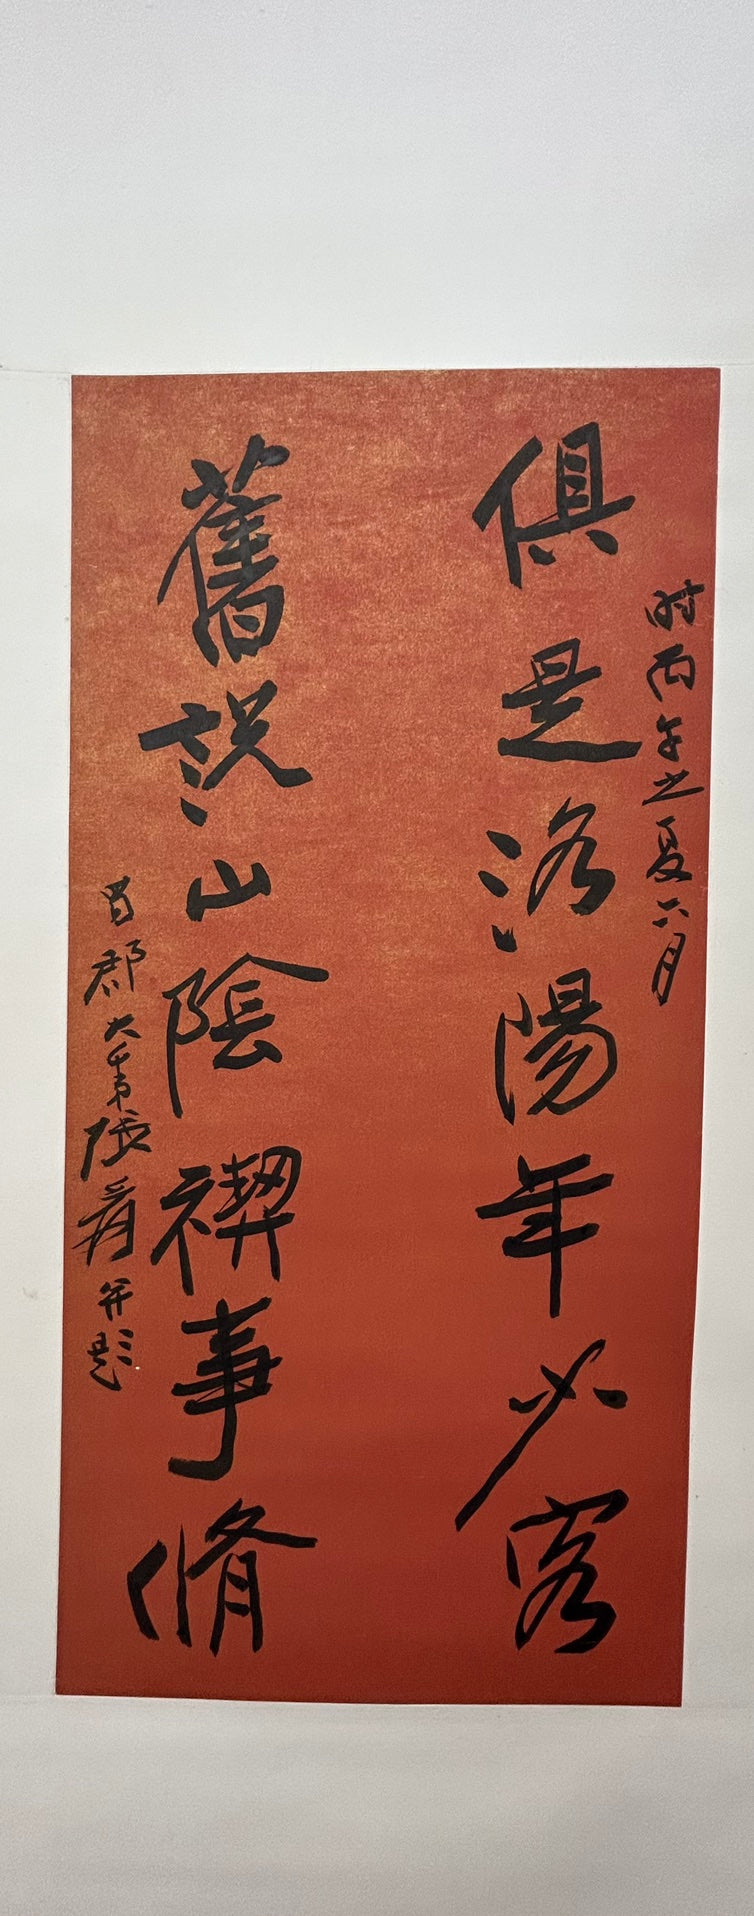 時丙午之夏六月
俱是洛陽年少客
舊說山陰禊事脩
蜀郡大千弟張爰并題